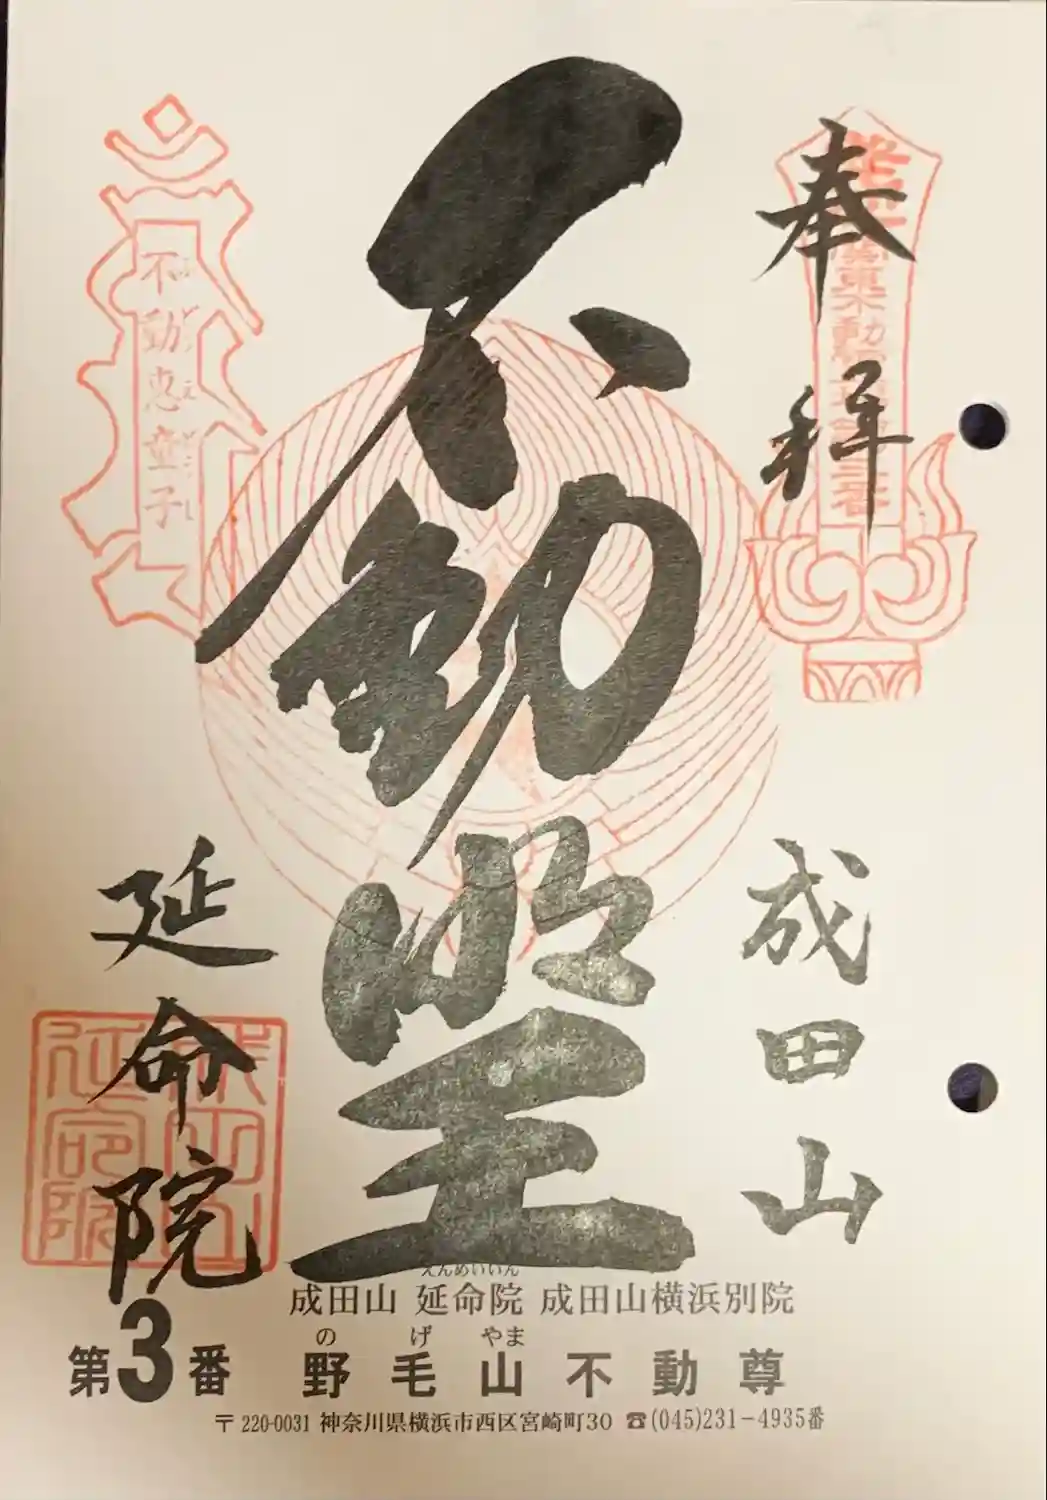 奉拜
成田山
不動堂
延命院
不動恵童子
関東不動霊場第三番
えんめいいん
成田山 延命院 成田山横浜別院
の げ やま
第3番 野毛山不動尊
〒220-0031 神奈川県横浜市西区宮崎町30 ☎(045)231-4935番